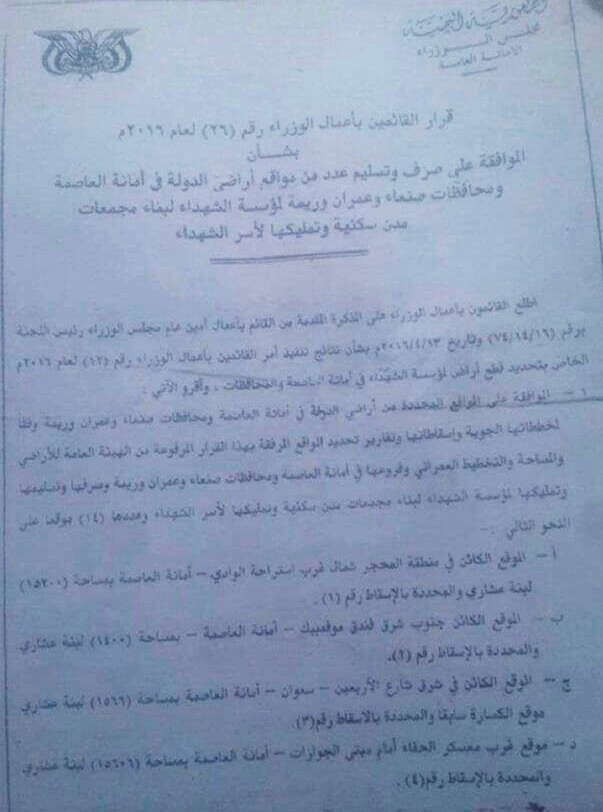 الجمهورية اليمنية
مجلس الوزراء
الأمانة العامة
قرار القائمين بأعمال الوزراء رقم (٢٦) لعام ٢٠١٦م
بشــأن
الموافقة على صرف وتسليم عدد من مواقع أراضي الدولة في أمانة العاصمة
ومحافظات صنعاء وعمران وريمة لمؤسسة الشهداء لبناء مجمعات
مدن سكنية وتمليكها لأسر الشهداء
اطلع القائمون بأعمال الوزراء على المذكرة المقدمة من القائم بأعمال أمين عام مجلس الوزراء رئيس اللجنة
برقم (٧٤/١٤/١٦) وتاريخ ٢٠١٦/٤/١٣م بشأن نتائج تنفيذ أمر القائمين بأعمال الوزراء رقم (١٢) لعام ٢٠١٦م
الخاص بتحديد قطع أراض لمؤسسة الشهداء في أمانة العاصمة والمحافظات ، وأقروا الآتي :
١ – الموافقة على المواقع المحددة من أراضي الدولة في أمانة العاصمة ومحافظات صنعاء وعمران وريمة وفقا
لمخططاتها الجوية وإسقاطاتها وتقارير تحديد المواقع المرفقة بهذا القرار المرفوعة من الهيئة العامة للأراضي
والمساحة والتخطيط العمراني وفروعها في أمانة العاصمة ومحافظات صنعاء وعمران وريمة وصرفها وتسليمها
وتمليكها لمؤسسة الشهداء لبناء مجمعات مدن سكنية وتمليكها لأسر الشهداء وعددها (١٤) موقعا على
النحو التالي :-
أ – الموقع الكائن في منطقة المحجر شمال غرب استراحة الوادي – أمانة العاصمة بمساحة (١٥٢٠٠)
لبنة عشاري والمحددة بالإسقاط رقم (١).
ب – الموقع الكائن جنوب شرق فندق موفمبيك – أمانة العاصمة – بمساحة (١٤٠٠) لبنة عشاري
والمحددة بالإسقاط رقم (٢).
ج – الموقع الكائن في شرق شارع الأربعين – سعوان – أمانة العاصمة بمساحة (١٥٦٦) لبنة عشاري
موقع الكسارة سابقا والمحددة بالاسقاط رقم(٣).
د – موقع غرب معسكر الحفاء أمام مبنى الجوازات – أمانة العاصمة بمساحة (١٥٦٠٦) لبنة عشاري
والمحددة بالإسقاط رقم(٤).